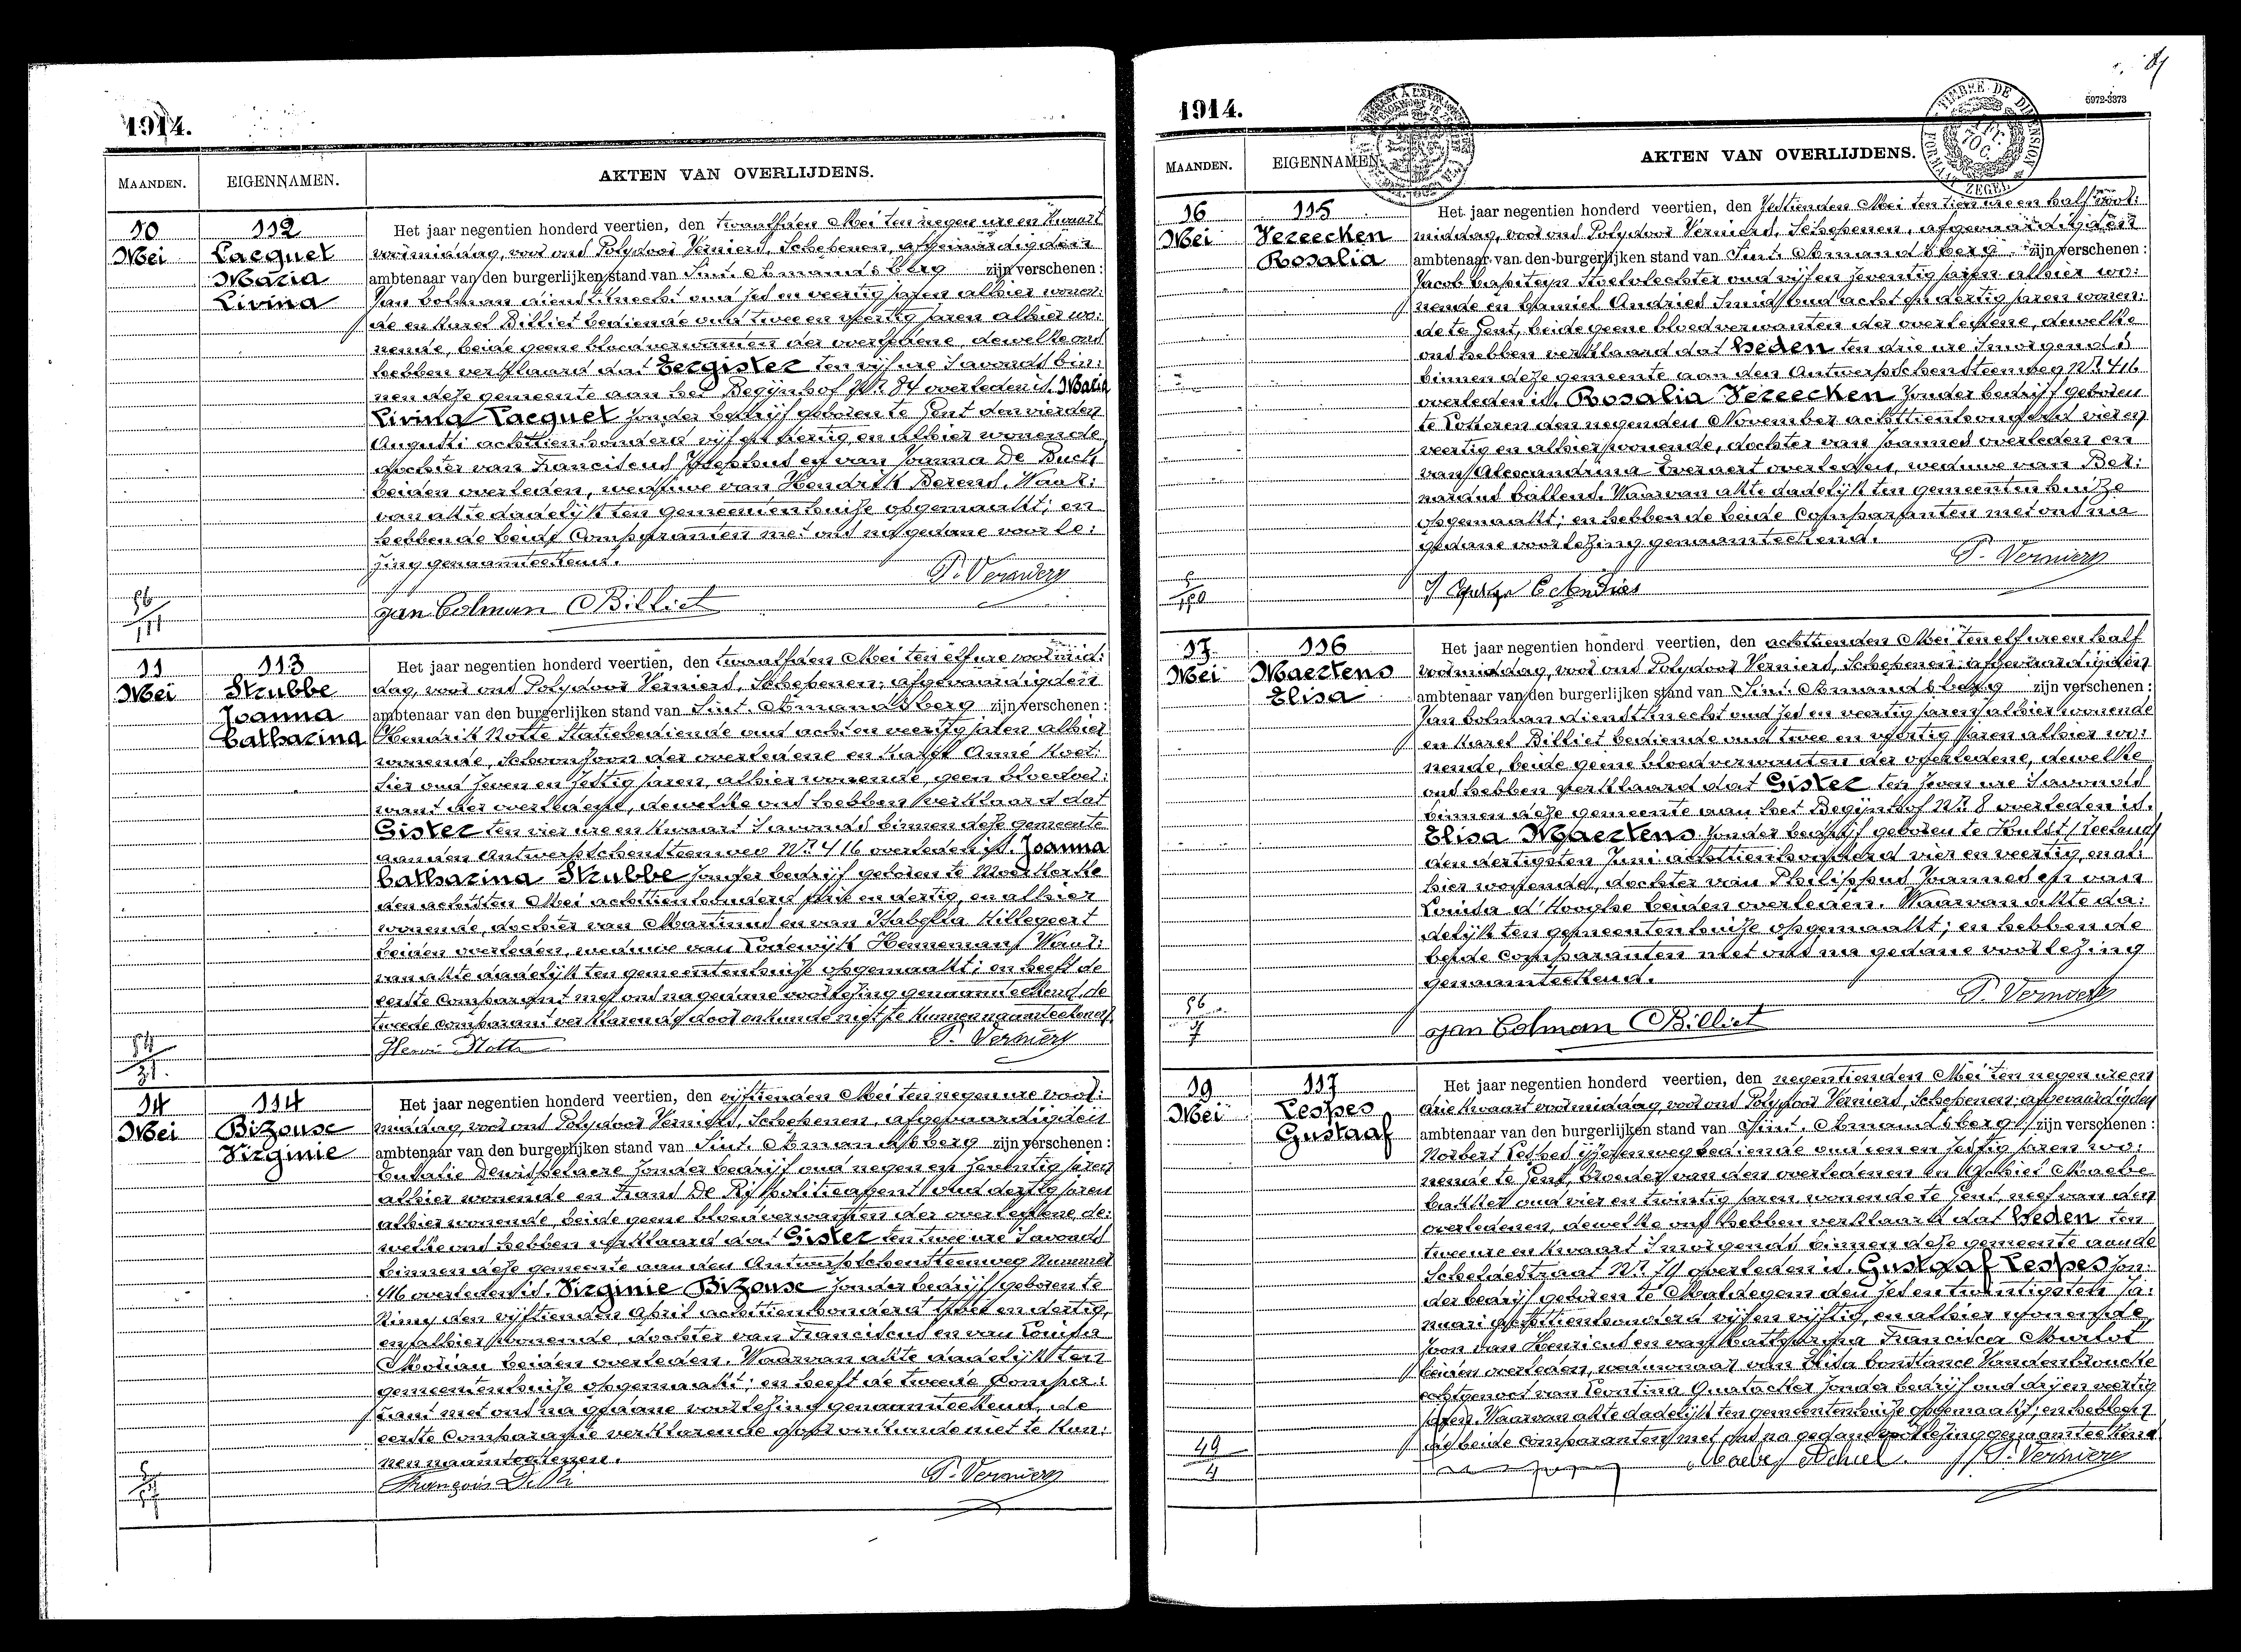 1914.
MAANDEN. EIGENNAMEN. AKTEN VAN OVERLIJDENS.
10 Mei
112
Lacquet
Maria
Livina
Het jaar negentien honderd veertien, den twaalfden Mei ten negen ure en kwaart
voormiddag, voor ons Polydoor Verniers, Schepenen, afgevaardigden
ambtenaar van den burgerlijken stand van Sint. Amandsberg zijn verschenen:
Jan Colman dienstknecht oud zes en veertig jaren alhier wonen:
de en Karel Billiet bediende oud twee en veertig jaren alhier wo:
nende, beide geene bloedverwanten der overledene, dewelke ons
hebben verklaard dat Eergister ten vijf ure 's avonds bin:
nen deze gemeente aan het Begijnhof Nr. 84 overleden is. Maria
Livina Lacquet zonder bedrijf geboren te Gent den vierden
Augusti achttien honderd vijf en dertig en alhier wonende
dochter van Franciscus Josephus en van Joanna De Buck
beiden overleden, weduwe van Hendrik Berens. Waar:
van akte dadelijk ten gemeentenhuize opgemaakt; en
hebben de beide Comparanten met ons na gedane voorle:
zing genaamteekend.
P. Verniers
Jan Colman Billiet
11 Mei
113
Strubbe
Joanna
Catharina
Het jaar negentien honderd veertien, den twaalfden Mei ten elf ure voormid:
dag, voor ons Polydoor Verniers, Schepenen, afgevaardigden
ambtenaar van den burgerlijken stand van Sint. Amandsberg zijn verschenen:
Hendrik Notte Statiebediende oud acht en veertig jaren alhier
wonende, schoonzoon der overledene en Karel Anné Koet:
sier oud zeven en zestig jaren, alhier wonende, geen bloedver:
want der overledene, dewelke ons hebben verklaard dat
Gister ten vier ure en kwaart 's avonds binnen deze gemeente
aan den Antwerpschensteenweg Nr. 416 overleden is. Joanna
Catharina Strubbe zonder bedrijf geboren te Moerkerke
den achtsten Mei achttien honderd en dertig, en alhier
wonende, dochter van Martinus en van Isabella Hillegeert
beiden overleden, weduwe van Lodewijk Hennemans. Waar:
van akte dadelijk ten gemeentenhuize opgemaakt; en heeft de
eerste comparant met ons na gedane voorlezing genaamteekend, de
tweede comparant verklarende door onkunde niet te kunnen naamteekenen.
Henri Notte P. Verniers
14 Mei
114
Bizouse
Virginie
Het jaar negentien honderd veertien, den vijftienden Mei ten negen ure voor:
middag, voor ons Polydoor Verniers, Schepenen, afgevaardigden
ambtenaar van den burgerlijken stand van Sint. Amandsberg zijn verschenen:
Eulalie Dewispelaere zonder bedrijf oud negen en zeventig jaren
alhier wonende en Frans De Rij politieagent oud dertig jaren
alhier wonende, beide geene bloedverwanten der overledene, de:
welke ons hebben verklaard dat Gister ten twee ure 's avonds
binnen deze gemeente aan den Antwerpschensteenweg Nummer
416 overleden is. Virginie Bizouse zonder bedrijf geboren te
den vijftienden April achttien honderd en dertig,
en alhier wonende, dochter van Franciscus en van Louisa
beiden overleden. Waarvan akte dadelijk ten
gemeentenhuize opgemaakt; en heeft de tweede Compa:
rant met ons na gedane voorlezing genaamteekend, de
eerste Comparante verklarende door onkunde niet te kun:
nen naamteekenen.
P. Verniers
1914.
5972-3373
MAANDEN. EIGENNAMEN. AKTEN VAN OVERLIJDENS.
16 Mei
115
Vereecken
Rosalia
Het jaar negentien honderd veertien, den Zestienden Mei ten tien ure en half voor:
middag, voor ons Polydoor Verniers, Schepenen, afgevaardigden
ambtenaar van den burgerlijken stand van Sint. Amandsberg zijn verschenen:
Jacob Capiteyn Stoelvlechter oud vijf en zeventig jaren alhier wo:
nende en Camiel Andries Smid oud acht en dertig jaren wonen:
de te Gent, beide geene bloedverwanten der overledene, dewelke
ons hebben verklaard dat Heden ten drie ure 's morgends
binnen deze gemeente aan den Antwerpschensteenweg Nr. 416
overleden is. Rosalia Vereecken Zonder bedrijf geboren
te Lokeren den negenden November achttien honderd vier en
veertig en alhier wonende, dochter van Joannes overleden en
van Alexandrina Everaert overleden, weduwe van Ber:
nardus Callens. Waarvan akte dadelijk ten gemeentenhuize
opgemaakt; en hebben de beide Comparanten met ons na
gedane voorlezing genaamteekend.
P. Verniers
17 Mei
116
Maertens
Elisa
Het jaar negentien honderd veertien, den achttienden Mei ten elf ure en half
voormiddag, voor ons Polydoor Verniers, Schepenen, afgevaardigden
ambtenaar van den burgerlijken stand van Sint. Amandsberg zijn verschenen:
Jan Colman dienstknecht oud zes en veertig jaren alhier wonende
en Karel Billiet bediende oud twee en veertig jaren alhier wo:
nende, beide geene bloedverwanten der overledene, dewelke
ons hebben verklaard dat Gister ten zeven ure 's avonds
binnen deze gemeente aan het Begijnhof Nr. 8 overleden is.
Elisa Maertens Zonder bedrijf geboren te Hulst (Zeeland)
den dertigsten Juni achttien honderd vier en veertig, en al:
hier wonende, dochter van Philippus Joannes en van
Louisa d'Hooghe beiden overleden. Waarvan akte da:
delijk ten gemeentenhuize opgemaakt; en hebben de
beide comparanten met ons na gedane voorlezing
genaamteekend.
P. Verniers
Jan Colman Billiet
19 Mei
117
Lespes
Gustaaf
Het jaar negentien honderd veertien, den negentienden Mei ten negen ure en
drie kwaart voormiddag, voor ons Polydoor Verniers, Schepenen, afgevaardigden
ambtenaar van den burgerlijken stand van Sint. Amandsberg zijn verschenen:
Norbert Lespes ijzerenwegbediende oud een en zestig jaren wo:
nende te Gent, broeder van den overledenen en Achiel Maebe
bakker oud vier en twintig jaren, wonende te Gent, neef van den
overledenen, dewelke ons hebben verklaard dat Heden ten
twee ure en kwaart 's morgends binnen deze gemeente aan de
Scheldestraat Nr. 79 overleden is. Gustaaf Lespes zon:
der bedrijf geboren te Maldegem den zes en twintigsten Ja:
nuari achttien honderd vijf en vijftig, en alhier wonende
zoon van Henricus en van Catharina Francisca
beiden overleden, weduwnaar van Elisa Constance Vandenbroucke
echtgenoot van Leontina Quatacker zonder bedrijf oud drij en veertig
jaren. Waarvan akte dadelijk ten gemeentenhuize opgemaakt; en hebben
de beide comparanten met ons na gedane voorlezing genaamteekend
Maebe Achiel. P. Verniers